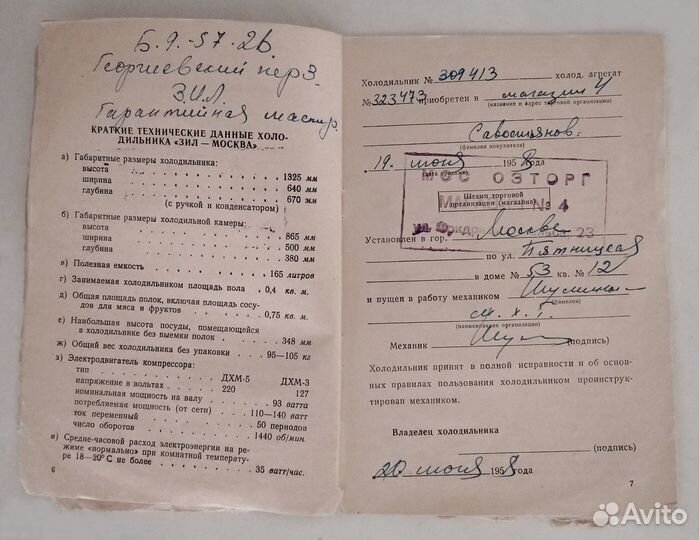 Б. 9-57-26
Георгиевский пер 3.
З.И.Л.
Гарантийная мастер.
КРАТКИЕ ТЕХНИЧЕСКИЕ ДАННЫЕ ХОЛО-
ДИЛЬНИКА «ЗИЛ — МОСКВА»
а) Габаритные размеры холодильника:
высота . . . . . 1325 мм
ширина . . . . . 640 мм
глубина . . . . . 670 мм
(с ручкой и конденсатором)
б) Габаритные размеры холодильной камеры:
высота . . . . . 865 мм
ширина . . . . . 500 мм
глубина . . . . . 380 мм
в) Полезная емкость . . . . . 165 литров
г) Занимаемая холодильником площадь пола . 0,4 кв. м
д) Общая площадь полок, включая площадь сосу-
дов для мяса и фруктов . . . . . 0,75 кв. м
е) Наибольшая высота посуды, помещающейся
в холодильнике без выемки полок . . . 348 мм
ж) Общий вес холодильника без упаковки . . 95—105 кг
з) Электродвигатель компрессора:
тип . . . . . ДХМ-5 ДХМ-3
напряжение в вольтах . . . . 220 127
номинальная мощность на валу . . . 93 ватта
потребляемая мощность (от сети) . . . 110—140 ватт
ток переменный . . . . . 50 периодов
число оборотов . . . . . 1440 об/мин.
и) Средне-часовой расход электроэнергии на ре-
жиме «нормально» при комнатной температу-
ре 18—20°С не более . . . . . 35 ватт/час.
6
Холодильник № 309413 холод. агрегат
№ 323473 приобретен в магазин 4
(название и адрес торговой организации)
Савостьянов
(фамилия покупателя)
19. июня 1958 года
МОСХОЗТОРГ
Штамп торговой
организации (магазина)
№ 4
23
Установлен в гор. Москве
по ул. Пятницкая
в доме № 53 кв. № 12
и пущен в работу механиком
(фамилия)
м. х. т.
(наименование организации)
Механик (подпись)
Холодильник принят в полной исправности и об основ-
ных правилах пользования холодильником проинструк-
тирован механиком.
Владелец холодильника
(подпись)
20 июня 1958 года
7
Avito